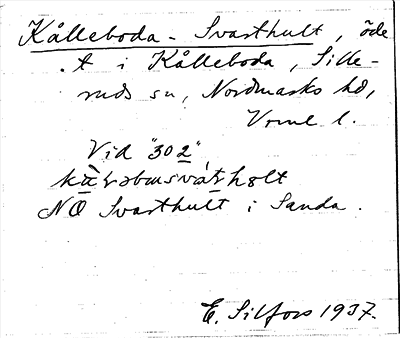 Kålleboda - Svarthult, öde
.t i Kålleboda, Sille-
ruds sn, Nordmarks hd,
Vrml l.
Vid "302",
NO Svarthult i Sanda.
E. Silfors 1937.